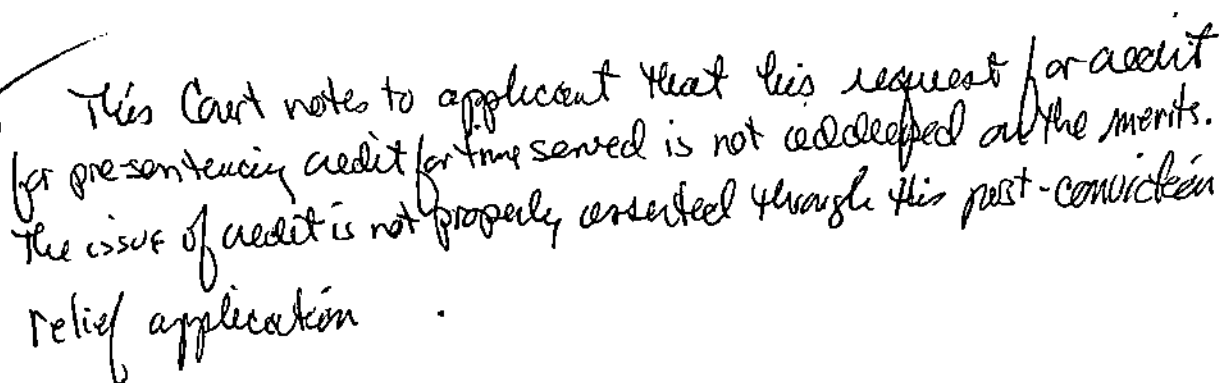 This Court notes to applicant that his request for credit
for pre sentencing credit for time served is not addressed on the merits.
The issue of credit is not properly asserted through this post-conviction
relief application .